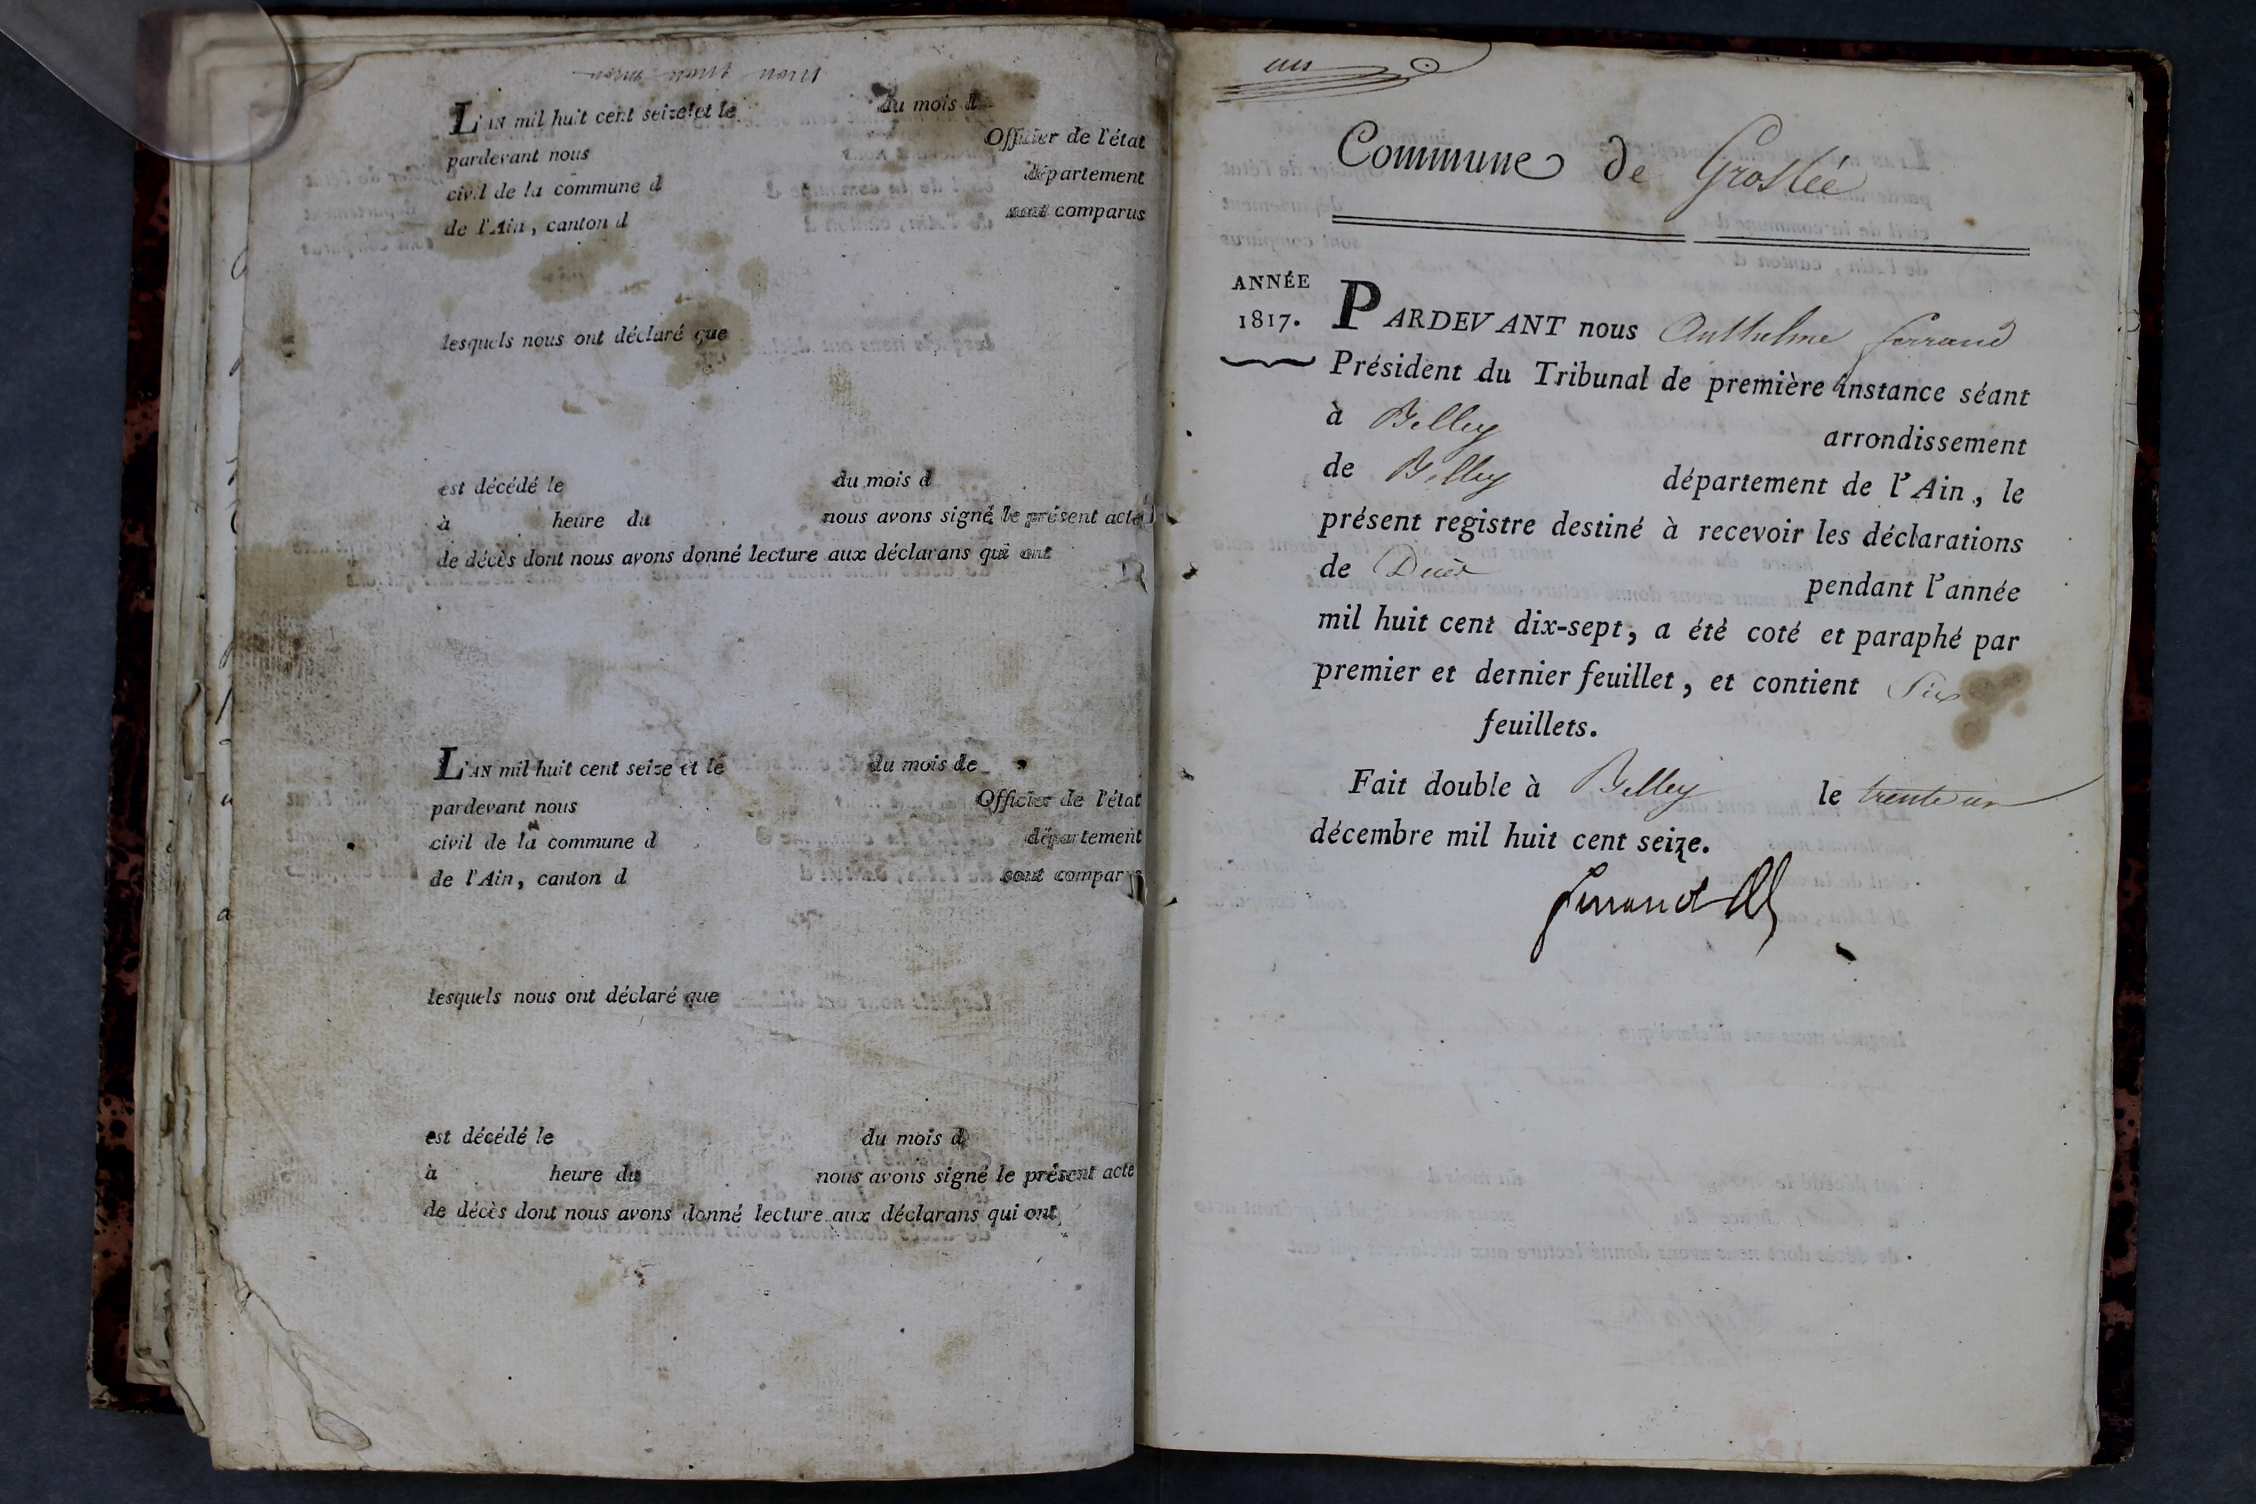 nous nous nous
L'AN mil huit cent seize et le du mois d
pardevant nous Officier de l'état
civil de la commune d département
de l'Ain, canton d sont comparus
lesquels nous ont déclaré que
est décédé le du mois d
à heure du nous avons signé le présent acte
de décès dont nous avons donné lecture aux déclarans qui ont
L'AN mil huit cent seize et le du mois de
pardevant nous Officier de l'état
civil de la commune d département
de l'Ain, canton d sont comparus
lesquels nous ont déclaré que
est décédé le du mois d
à heure du nous avons signé le présent acte
de décès dont nous avons donné lecture aux déclarans qui ont
un
Commune de Groslée
ANNÉE
1817.
PARDEVANT nous Anthelme ferrand
Président du Tribunal de première instance séant
à Belley arrondissement
de Belley département de l'Ain, le
présent registre destiné à recevoir les déclarations
de Décès pendant l'année
mil huit cent dix-sept, a été coté et paraphé par
premier et dernier feuillet, et contient Six
feuillets.
Fait double à Belley le trente un
décembre mil huit cent seize.
ferrand